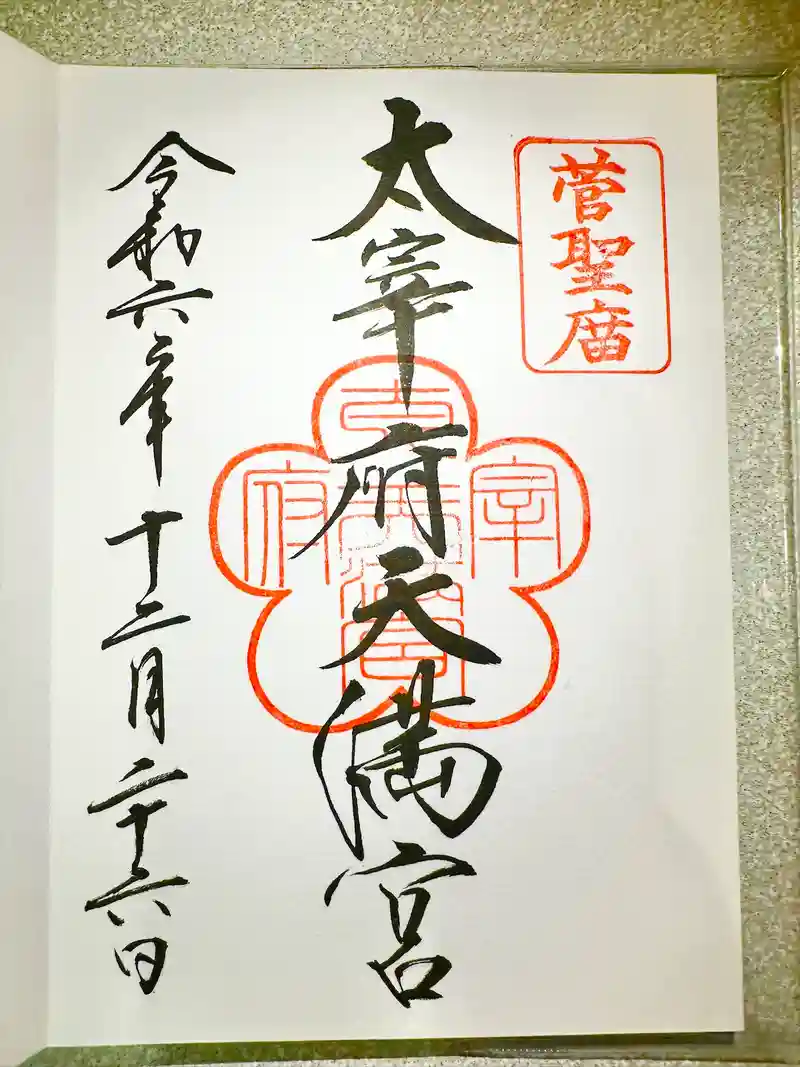 菅聖廟
太宰府天満宮
太宰府天満宮
令和六年十二月二十六日